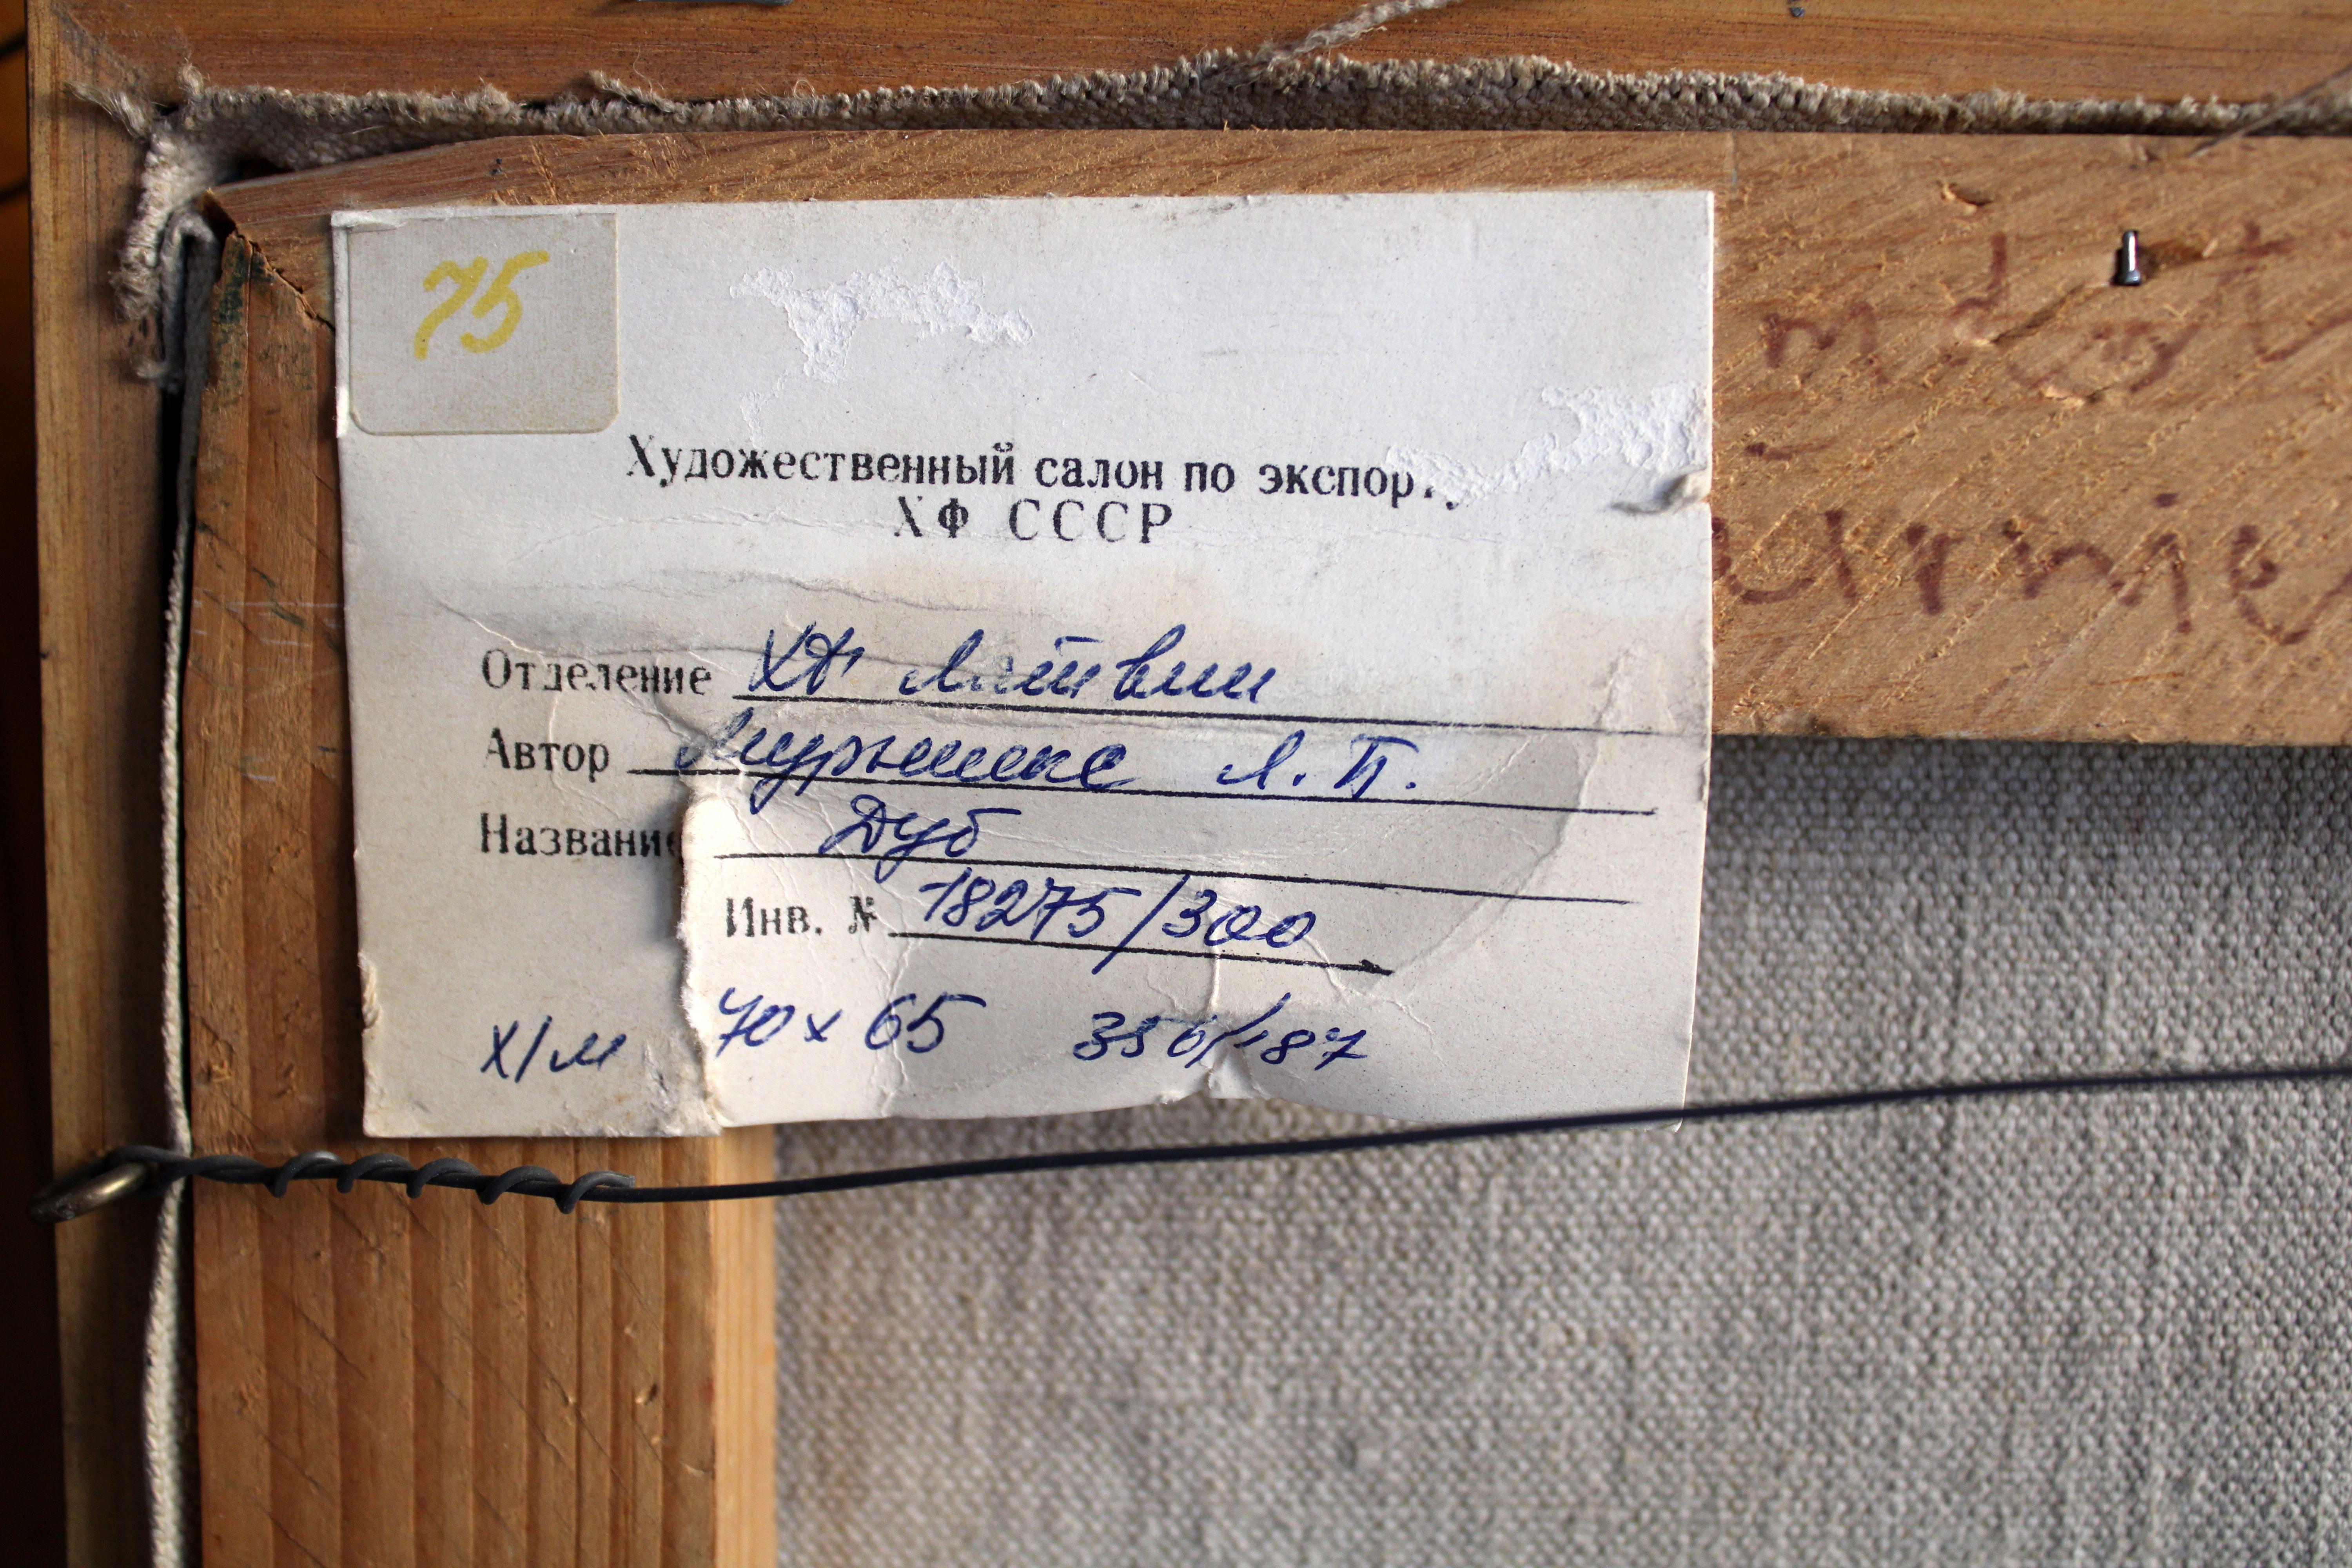 75
Художественный салон по экспорту
ХФ СССР
Отделение ХФ Латвии
Автор Мурниекс Л. П.
Название Дуб
Инв. № 18275/300
х/м 70 х 65 356/87